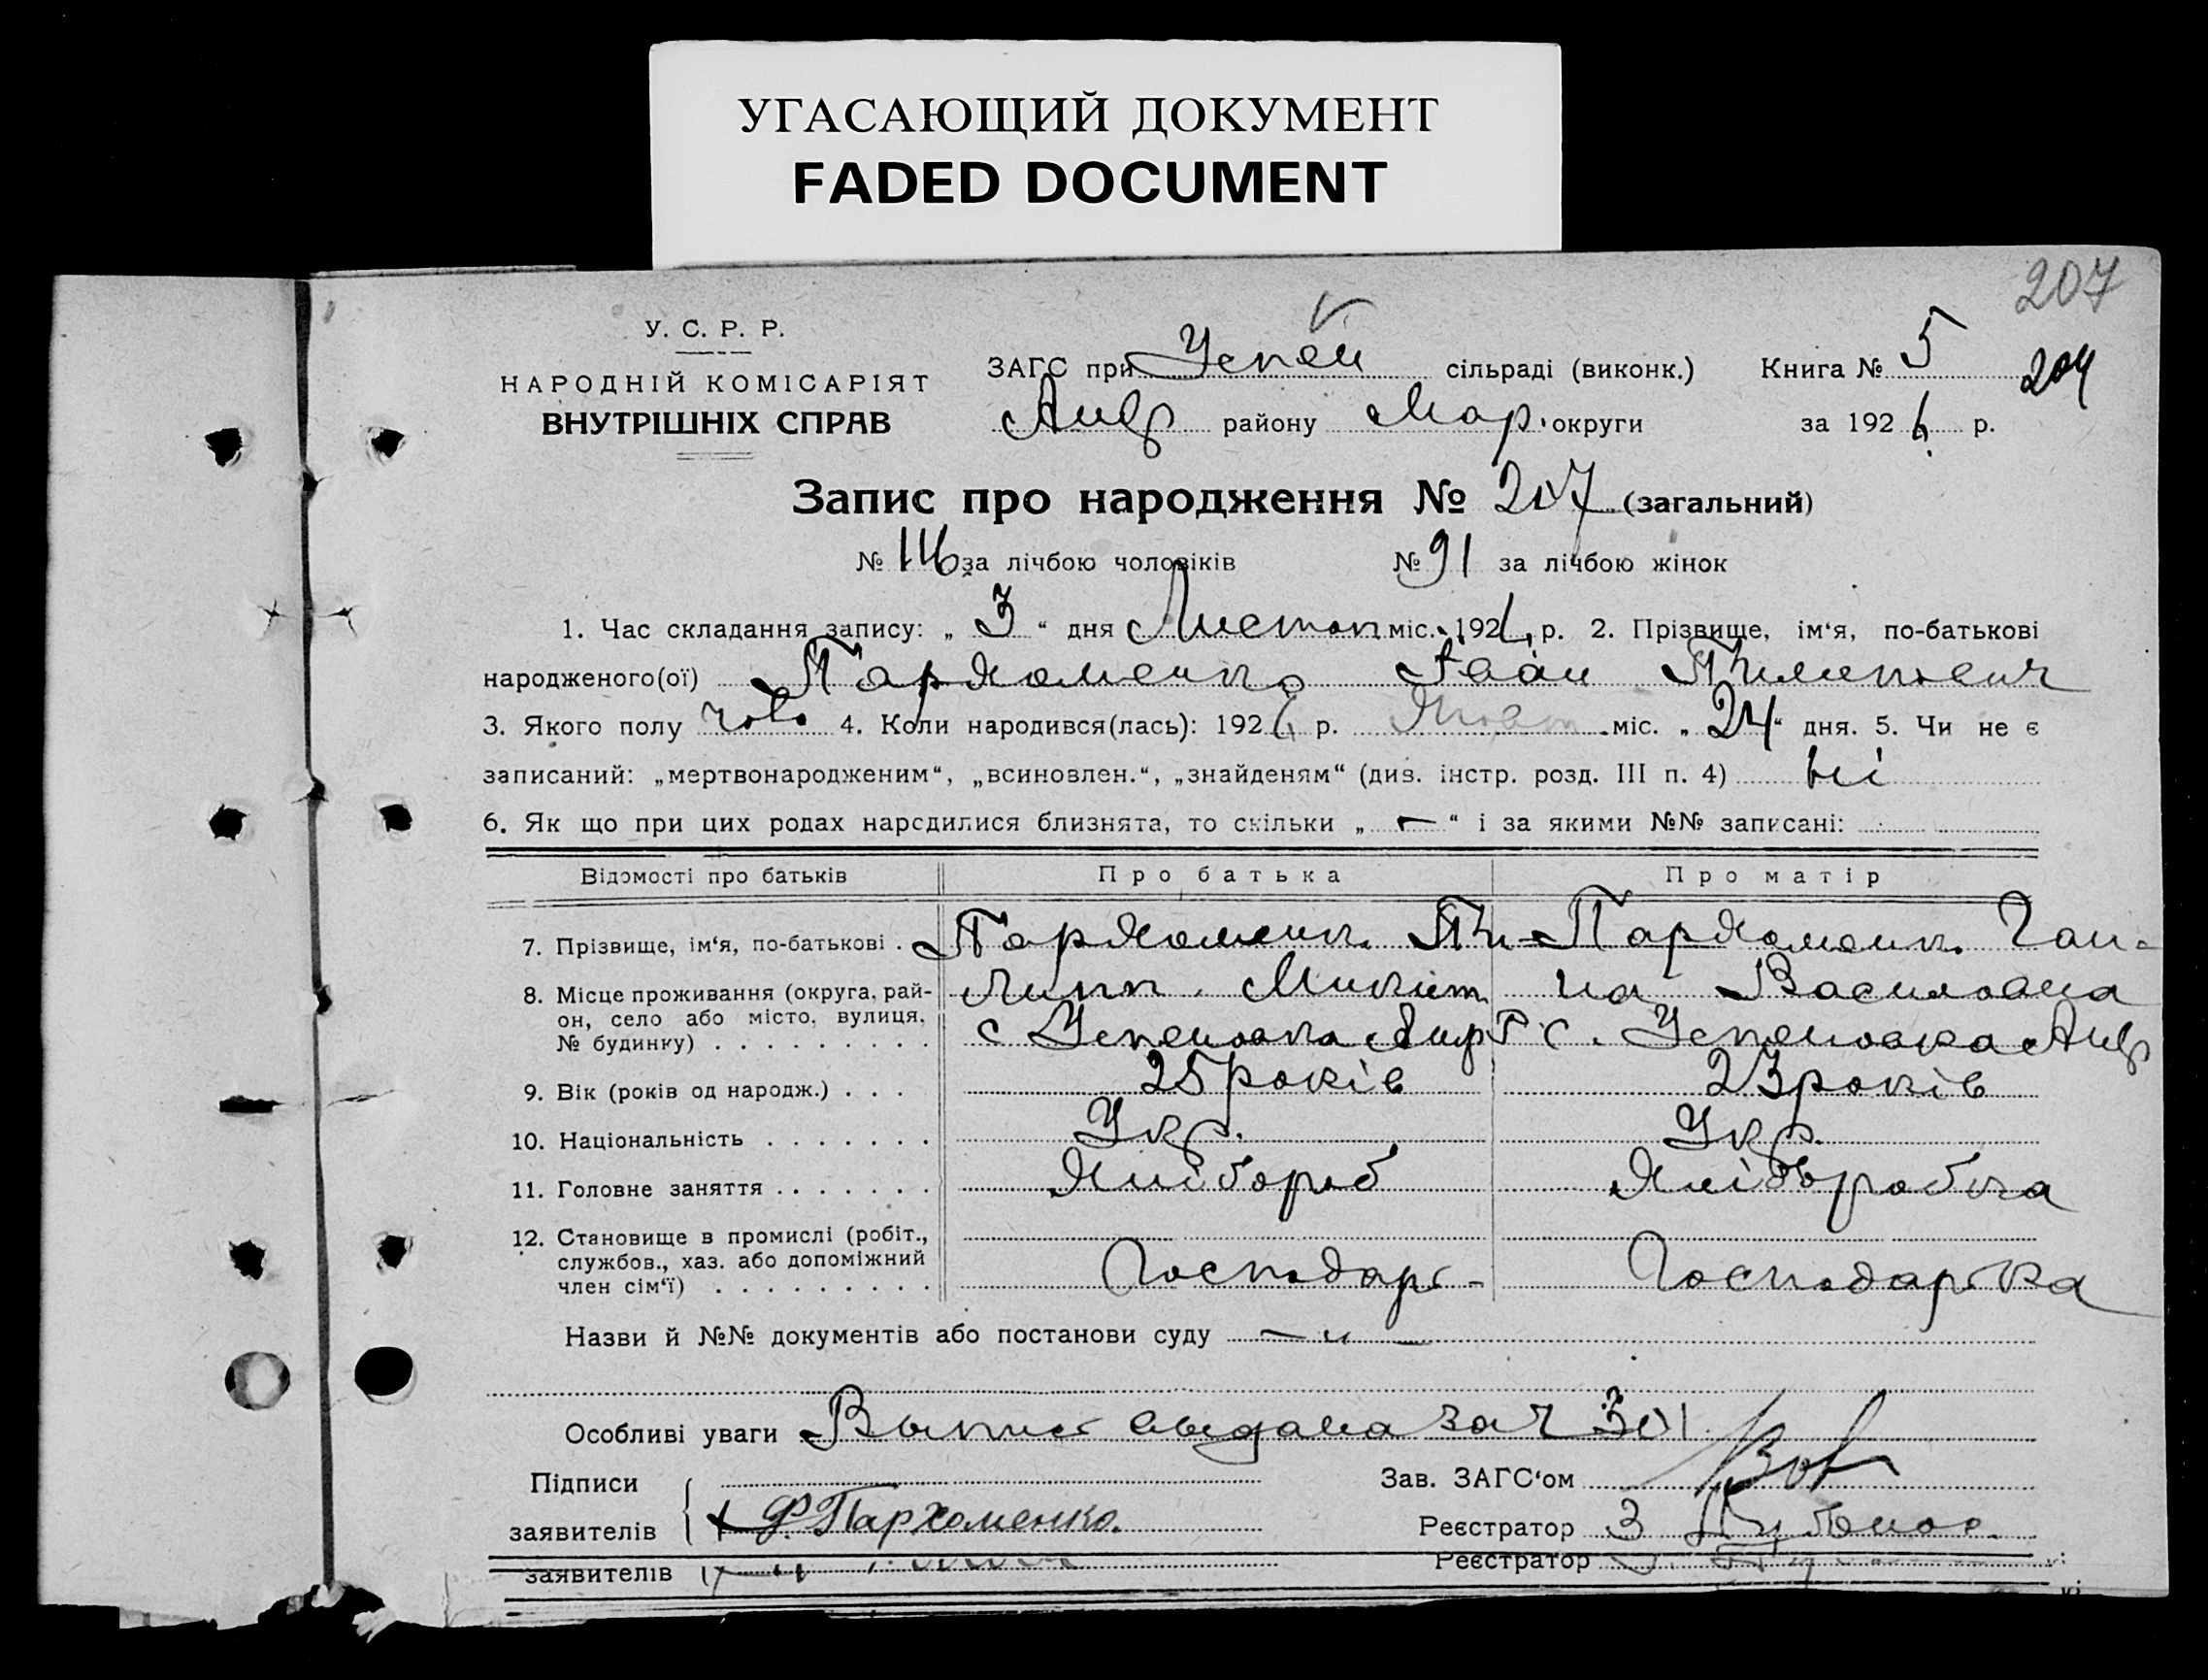 УГАСАЮЩИЙ ДОКУМЕНТ
FADED DOCUMENT
207
У. С. Р. Р.
НАРОДНІЙ КОМІСАРІЯТ
ВНУТРІШНІХ СПРАВ
ЗАГС при Успен сільраді (виконк.) Книга № 5
204
Андр району Мар. округи за 1926 р.
Запис про народження № 207 (загальний)
№ 116 за лічбою чоловіків № 91 за лічбою жінок
1. Час складання запису: „ 3 “ дня Листоп міс. 1926 р. 2. Прізвище, ім‘я, по-батькові
народженого(ої) Пархоменко Іван Пилипович
3. Якого полу чол. 4. Коли народився(лась): 1926 р. Жовт міс. „ 24 “ дня. 5. Чи не є
записаний: „мертвонародженим“, „всиновлен.“, „знайденям“ (див. інстр. розд. III п. 4) ні
6. Як що при цих родах народилися близнята, то скільки „ — “ і за якими №№ записані:
Відомості про батьків Про батька Про матір
7. Прізвище, ім‘я, по-батькові . Пархоменк. Пи- Пархоменк. Ган-
8. Місце проживання (округа, рай- липп. Микит на Василовна
он, село або місто, вулиця,
№ будинку) . . . . . . . . . с Успеновка Андр Р с. Успеновка Андр
9. Вік (років од народж.) . . . 25 років 23 років
10. Національність . . . . . . . Укр. Укр.
11. Головне заняття . . . . . . . Хлібороб Хліборобка
12. Становище в промислі (робіт.,
службов., хаз. або допоміжний
член сім‘ї) . . . . . . . . . Господарь- Господарька
Назви й №№ документів або постанови суду — „ —
Особливі уваги Выпис выдана за Ч 301
Підписи Зав. ЗАГС‘ом
заявителів Ф. Пархоменко. Реєстратор
заявителів Реєстратор